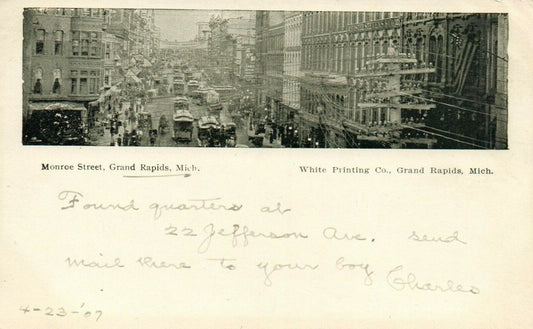 Monroe Street, Grand Rapids, Mich.
White Printing Co., Grand Rapids, Mich.
Found quarters at
22 Jefferson Ave. send
mail there to your boy Charles
4-23-'07